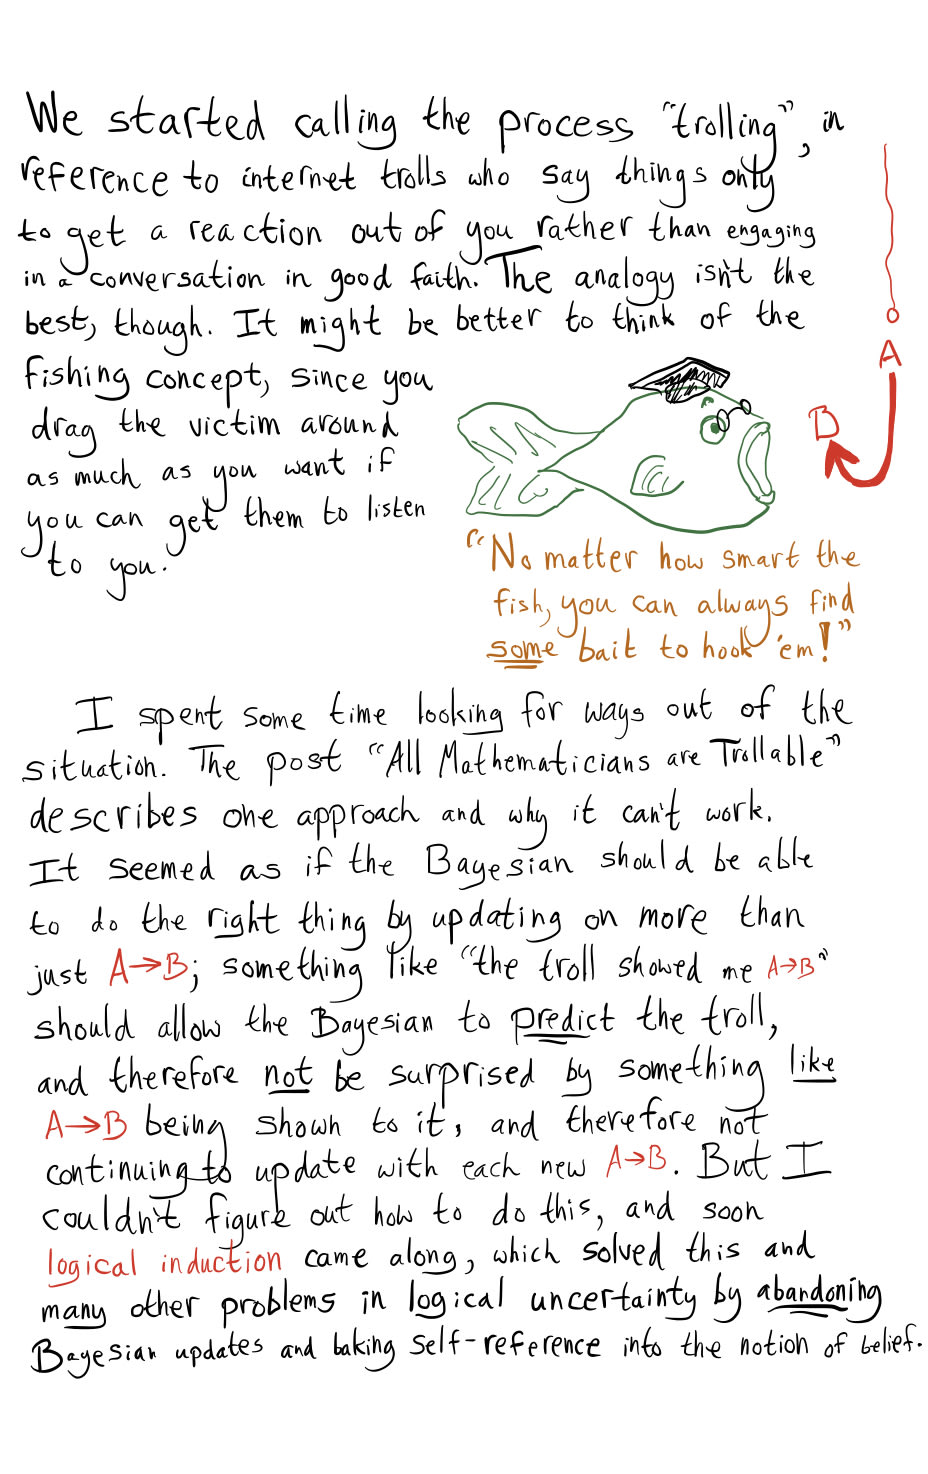 We started calling the process "trolling", in
reference to internet trolls who say things only
to get a reaction out of you rather than engaging
in a conversation in good faith. The analogy isn't the
best, though. It might be better to think of the
fishing concept, since you
drag the victim around
as much as you want if
you can get them to listen
to you.
A
B
"No matter how smart the
fish, you can always find
some bait to hook 'em!"
I spent some time looking for ways out of the
situation. The post "All Mathematicians are Trollable"
describes one approach and why it can't work.
It seemed as if the Bayesian should be able
to do the right thing by updating on more than
just A→B; something like "the troll showed me A→B"
should allow the Bayesian to predict the troll,
and therefore not be surprised by something like
A→B being shown to it, and therefore not
continuing to update with each new A→B. But I
couldn't figure out how to do this, and soon
logical induction came along, which solved this and
many other problems in logical uncertainty by abandoning
Bayesian updates and baking self-reference into the notion of belief.